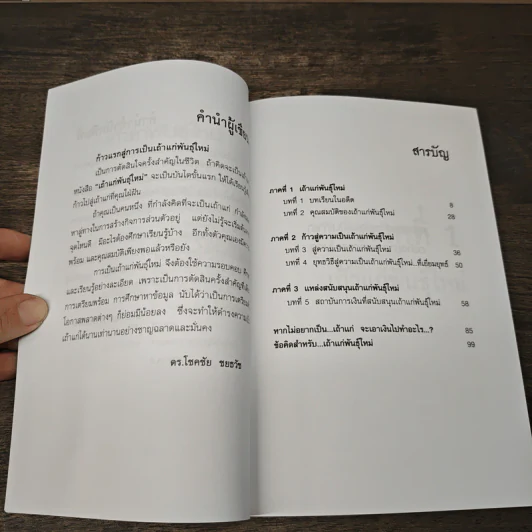 คำนำผู้เขียน
ก้าวแรกสู่การเป็นเถ้าแก่พันธุ์ใหม่
เป็นการตัดสินใจครั้งสำคัญในชีวิต ถ้าคิดจะเป็นเถ้าแก่
หนังสือ "เถ้าแก่พันธุ์ใหม่" จะเป็นบันไดขั้นแรก ให้ได้เรียนรู้
ก้าวไปสู่เถ้าแก่ที่คุณใฝ่ฝัน
ถ้าคุณเป็นคนหนึ่ง ที่กำลังคิดที่จะเป็นเถ้าแก่
หาลู่ทางในการสร้างกิจการส่วนตัวอยู่ แต่ยังไม่รู้จะเริ่มต้น
จุดไหนดี มีอะไรต้องศึกษาเรียนรู้บ้าง อีกทั้งตัวคุณเอง
พร้อม และคุณสมบัติเพียงพอแล้วหรือยัง
การเป็นเถ้าแก่พันธุ์ใหม่ จึงต้องใช้ความรอบคอบ
และเรียนรู้อย่างละเอียด เพราะเป็นการตัดสินใจครั้งสำคัญ
การเตรียมพร้อม การศึกษาหาข้อมูล นับได้ว่าเป็นการเตรียม
โอกาสพลาดต่างๆ ก็ย่อมมีน้อยลง ซึ่งจะทำให้ดำรงความ
เถ้าแก่ได้นานเท่านานอย่างชาญฉลาดและมั่นคง
ดร.โชคชัย ชยธวัช
สารบัญ
ภาคที่ 1 เถ้าแก่พันธุ์ใหม่
บทที่ 1 บทเรียนในอดีต 8
บทที่ 2 คุณสมบัติของเถ้าแก่พันธุ์ใหม่ 28
ภาคที่ 2 ก้าวสู่ความเป็นเถ้าแก่พันธุ์ใหม่
บทที่ 3 สู่ความเป็นเถ้าแก่พันธุ์ใหม่ 36
บทที่ 4 ยุทธวิธีสู่ความเป็นเถ้าแก่พันธุ์ใหม่..ที่เยี่ยมยุทธ์ 50
ภาคที่ 3 แหล่งสนับสนุนเถ้าแก่พันธุ์ใหม่
บทที่ 5 สถาบันการเงินที่สนับสนุนเถ้าแก่พันธุ์ใหม่ 58
หากไม่อยากเป็น...เถ้าแก่ จะเอาเงินไปทำอะไร...? 85
ข้อคิดสำหรับ...เถ้าแก่พันธุ์ใหม่ 99